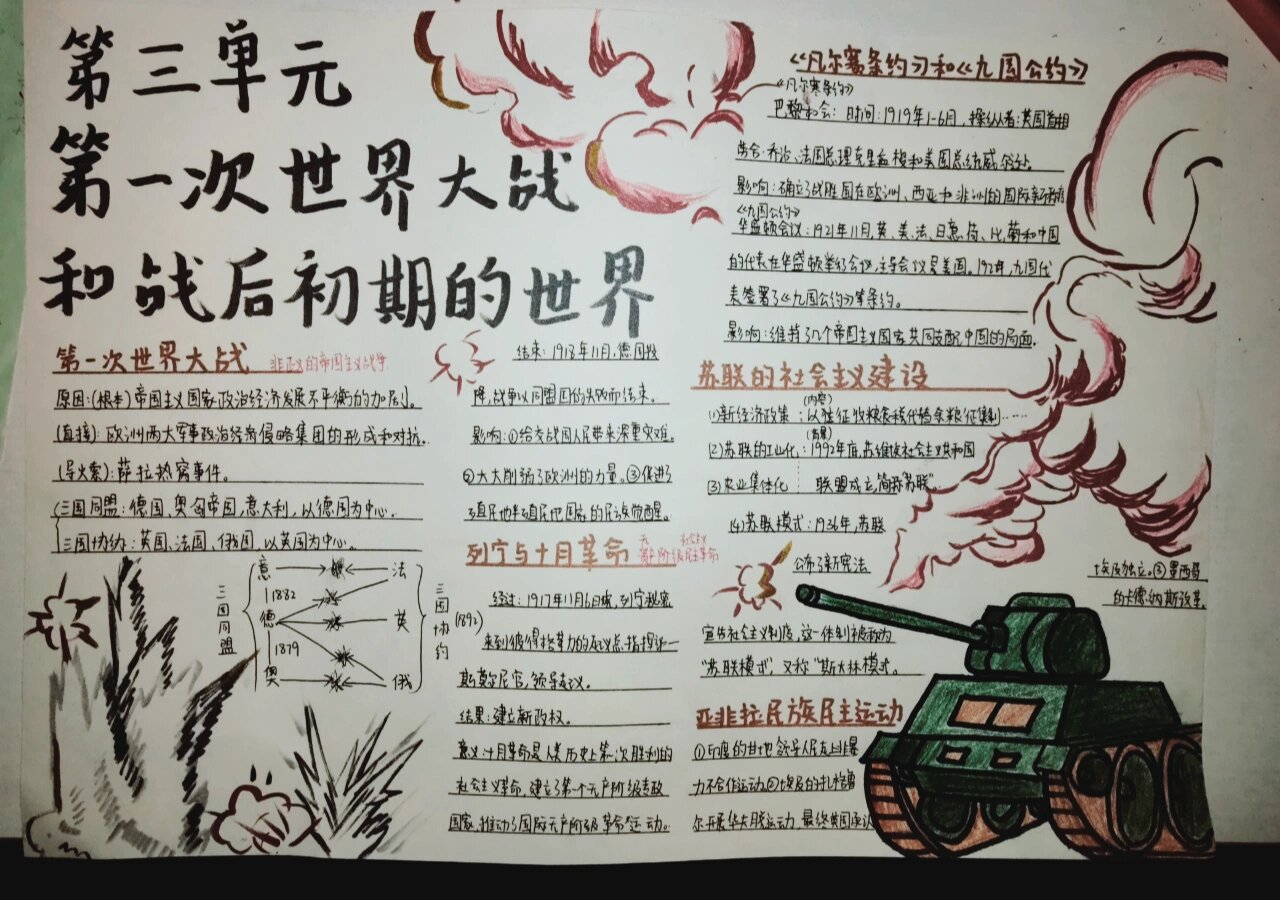 第三单元
第一次世界大战
和战后初期的世界
第一次世界大战 非正义的帝国主义战争
原因:(根本)帝国主义国家政治经济发展不平衡的加剧。
(直接):欧洲两大军事政治经济侵略集团的形成和对抗.
(导火索):萨拉热窝事件。
三国同盟:德国、奥匈帝国,意大利,以德国为中心.
三国协约:英国、法国、俄国,以英国为中心。
三国同盟
意
1882
德
1879
奥
法
英
俄
三国协约
(1892)
结束:1918年11月,德国投
降,战争以同盟国的失败而结束.
影响:①给交战国人民带来深重灾难。
②大大削弱了欧洲的力量。③促进了
殖民地半殖民地国家的民族觉醒。
列宁与十月革命 无产阶级 社会主义革命
经过:1917年11月6日夜,列宁秘密
来到彼得格革力的起义总指挥部一
斯莫尔尼宫,领导起义。
结果:建立新政权。
意义:十月革命是人类历史上第一次胜利的
社会主义革命,建立了第一个无产阶级专政
国家,推动了国际无产阶级革命运动.
《凡尔赛条约》和《九国公约》
《凡尔赛条约》
巴黎和会:时间:1919年1-6月,操纵者:英国首相
劳合·乔治、法国总理克里孟梭和美国总统威尔逊.
影响:确立了战胜国在欧洲、西亚和非洲的国际新秩序
《九国公约》
华盛顿会议:1921年11月,英、美、法、日意、荷、比、葡和中国
的代表在华盛顿举行会议,主导会议是美国,192年,九国代
表签署了《九国公约》等条约。
影响:维持了几个帝国主义国家共同支配中国的局面。
苏联的社会主义建设
(内容)
(1)新经济政策:以征收粮食税代替余粮征集制……
(背景)
(2)苏联的工业化:1992年底,苏维埃社会主义共和国
(3)农业集体化 联盟成立,简称"苏联".
(4)苏联模式:1936年,苏联
公布了新宪法
宣告社会主义制度,这一体制被称为
"苏联模式",又称"斯大林模式。
亚非拉民族民主运动
①印度的甘地领导人民友上非暴
力不合作运动.②埃及的扎格鲁
尔开展华夫脱运动,最终英国承认
埃及独立。③墨西哥
的卡德纳斯改革。